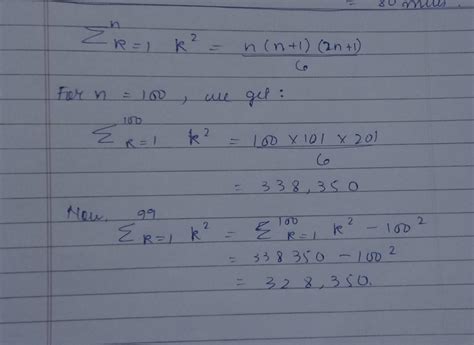 = 80 miles.
n
Σ k=1 k² = n(n+1)(2n+1)
6
For n = 100, we get:
100
Σ k=1 k² = 100 × 101 × 201
6
= 338,350
Now,
99 100
Σ k=1 k² = Σ k=1 k² - 100²
= 338350 - 100²
= 328,350.